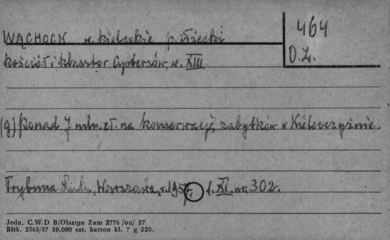 WĄCHOCK w. kieleckie p. iłżecki
464
kościół i klasztor Cystersów, w. XIII
D.Z.
(g) Ponad 7 mln. zł. na konserwację zabytków w Kielecczyźnie.
Trybuna Ludu, Warszawa, r. 1957, 1. XI. nr. 302.
Jedn. C.W.D B/Olsztyn Zam 2776 /on/ 57
Błtk. 2563/57 10.000 szt. karton kl. 7 g 220.